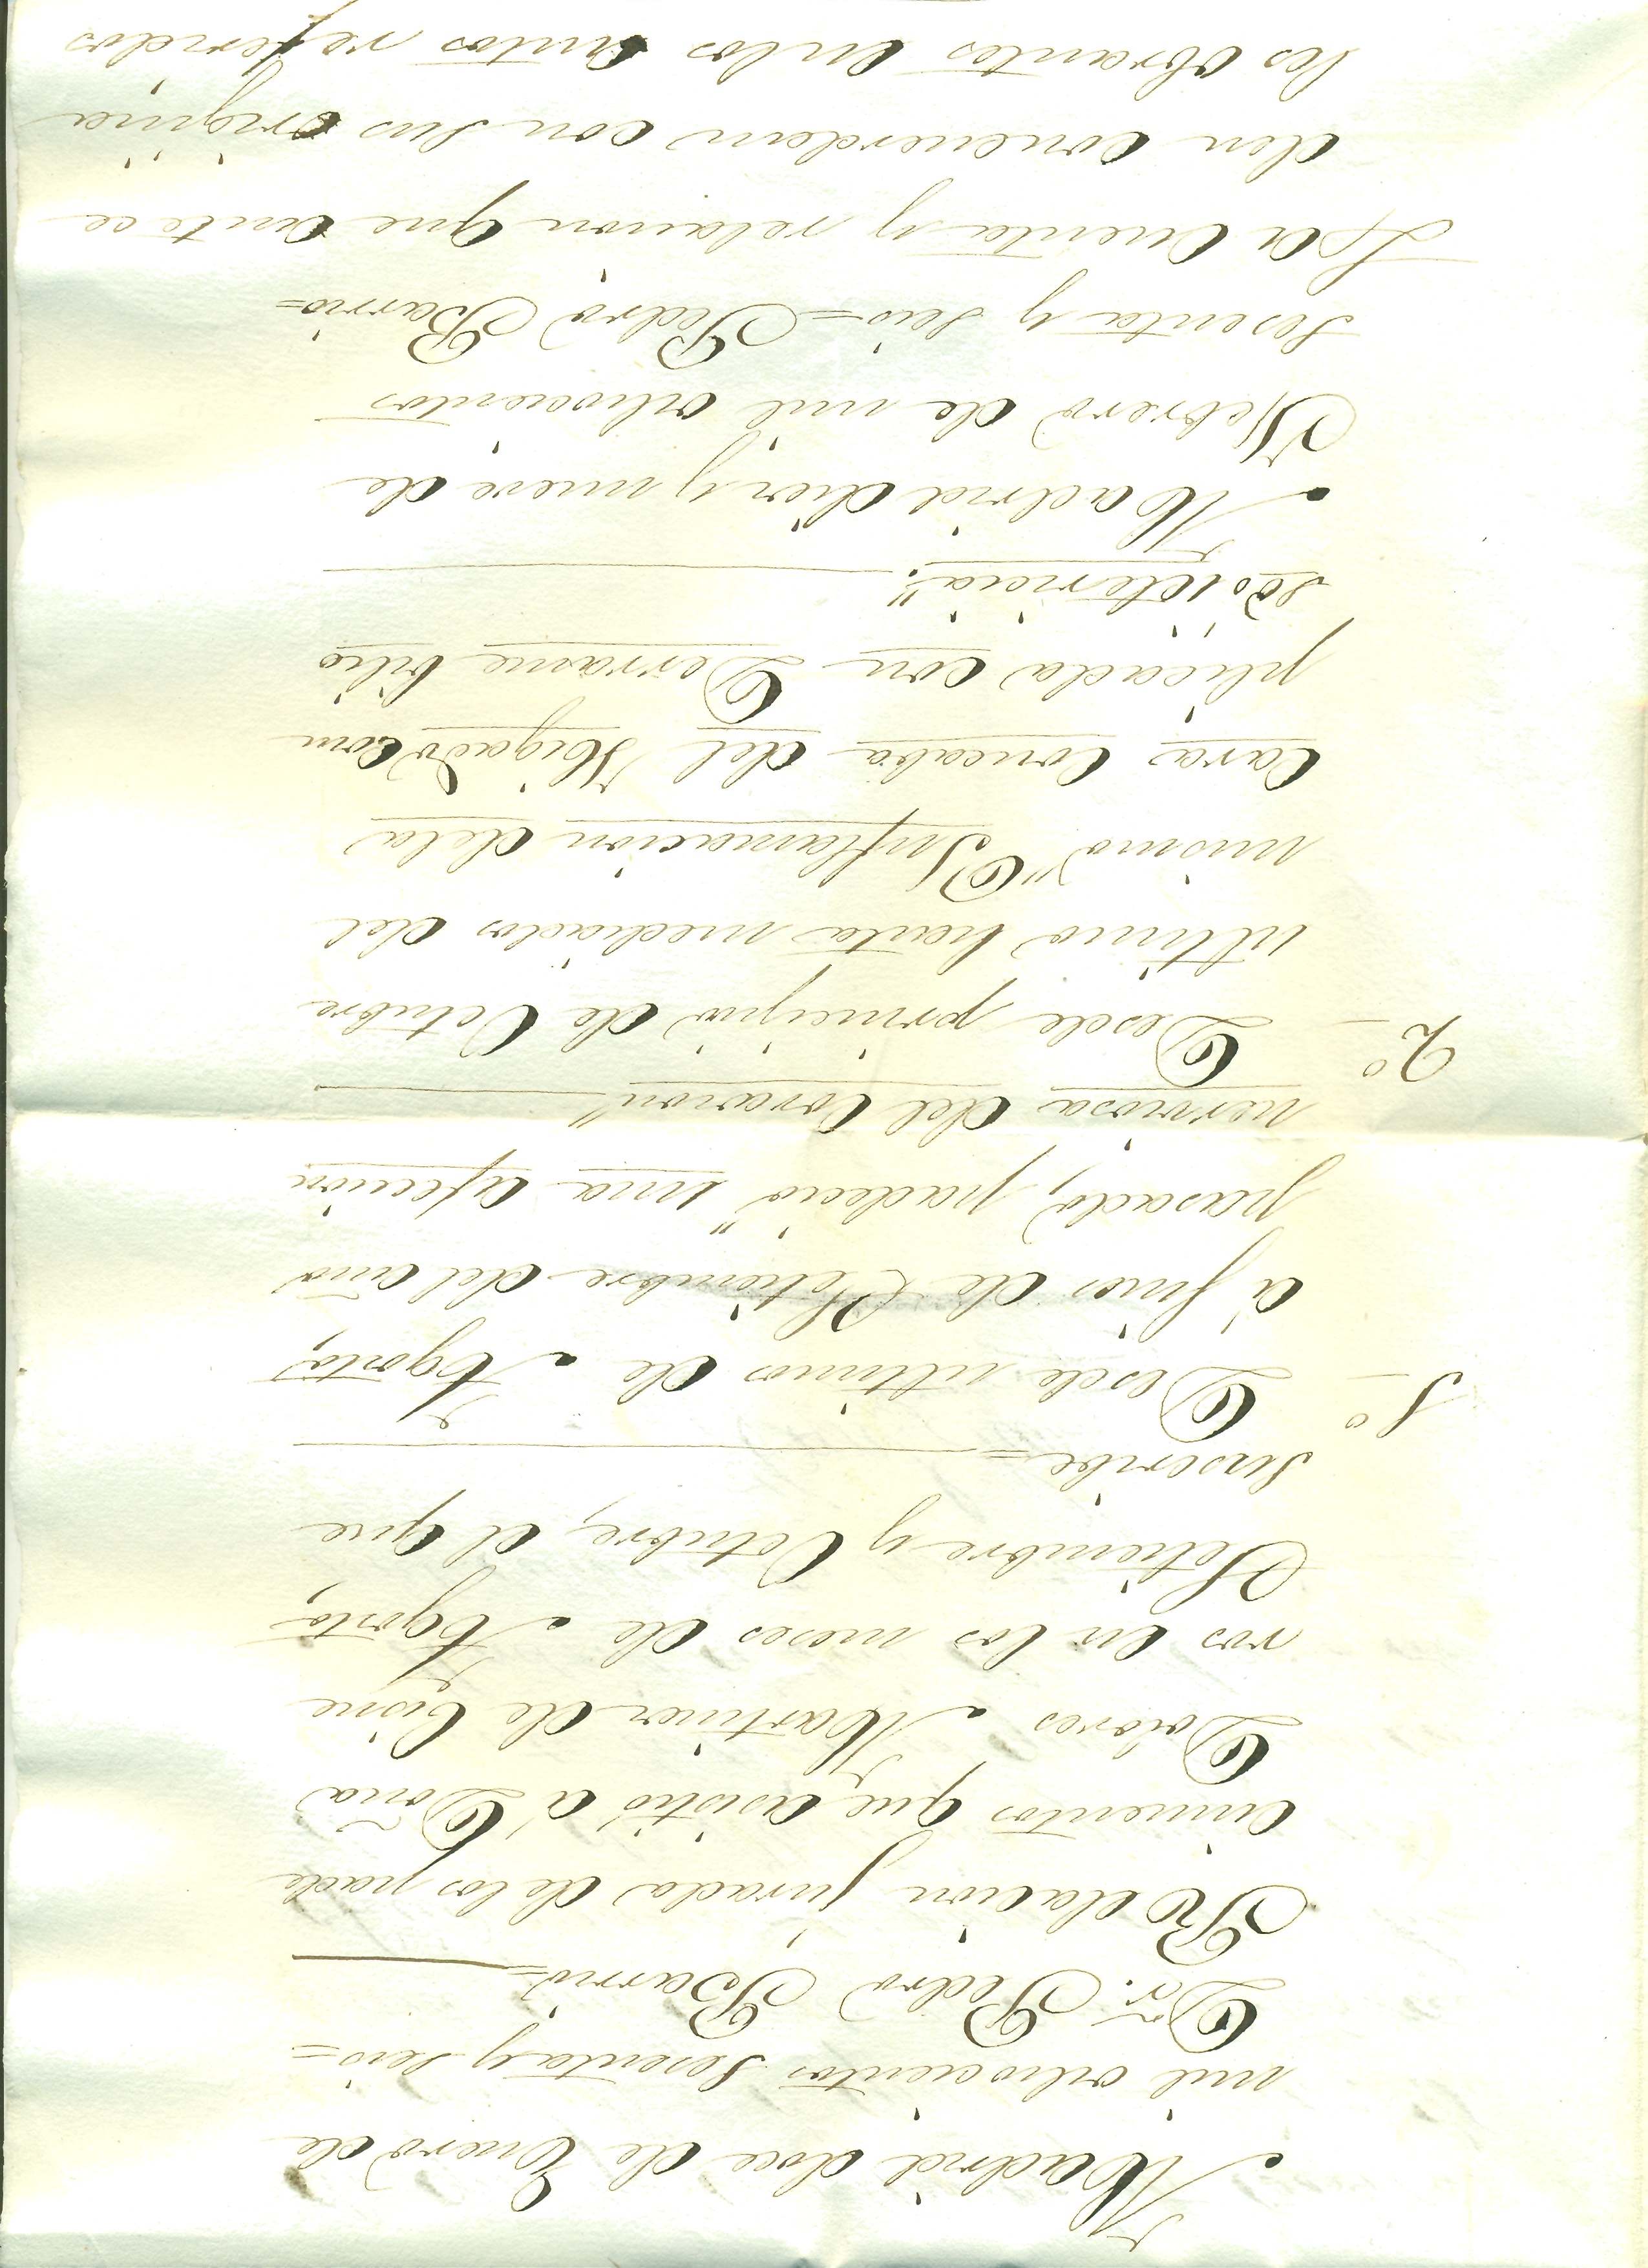 Madrid doce de Enero de
mil ochocientos sesenta y seis=
Dor. Pedro Barrio=
Relacion jurada de los pade
cimientos que asistió a Doña
Dolores Martinez de Cisne
ros en los meses de Agosto,
Setiembre y Octubre, el que
suscribe=
1º Desde ultimos de Agosto,
á fines de Setiembre del año
pasado, padeció "una afeccion
nerviosa del Corazon"
2º Desde principio de Octubre
ultimo hasta mediados del
mismo "Inflamacion de la
Cara Concaba del Higado com
plicada con Derrame bilio
so Ictericia".
Madrid diez y nueve de
Febrero de mil ochocientos
sesenta y seis= Pedro Barrio=
La Cuenta y relacion que antece
den concuerdan con sus origina
les obrantes en los autos referidos